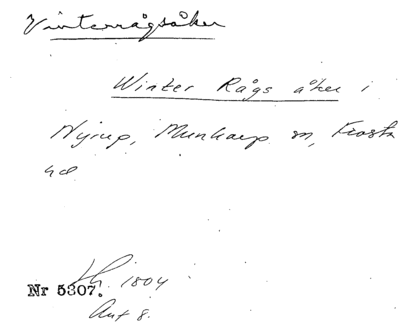 Vinterrågsåker
Winter Rågs åker i
Nyrup, Munkarp sn, Frosta
hd
1804
Nr 5307.
Akt 8.